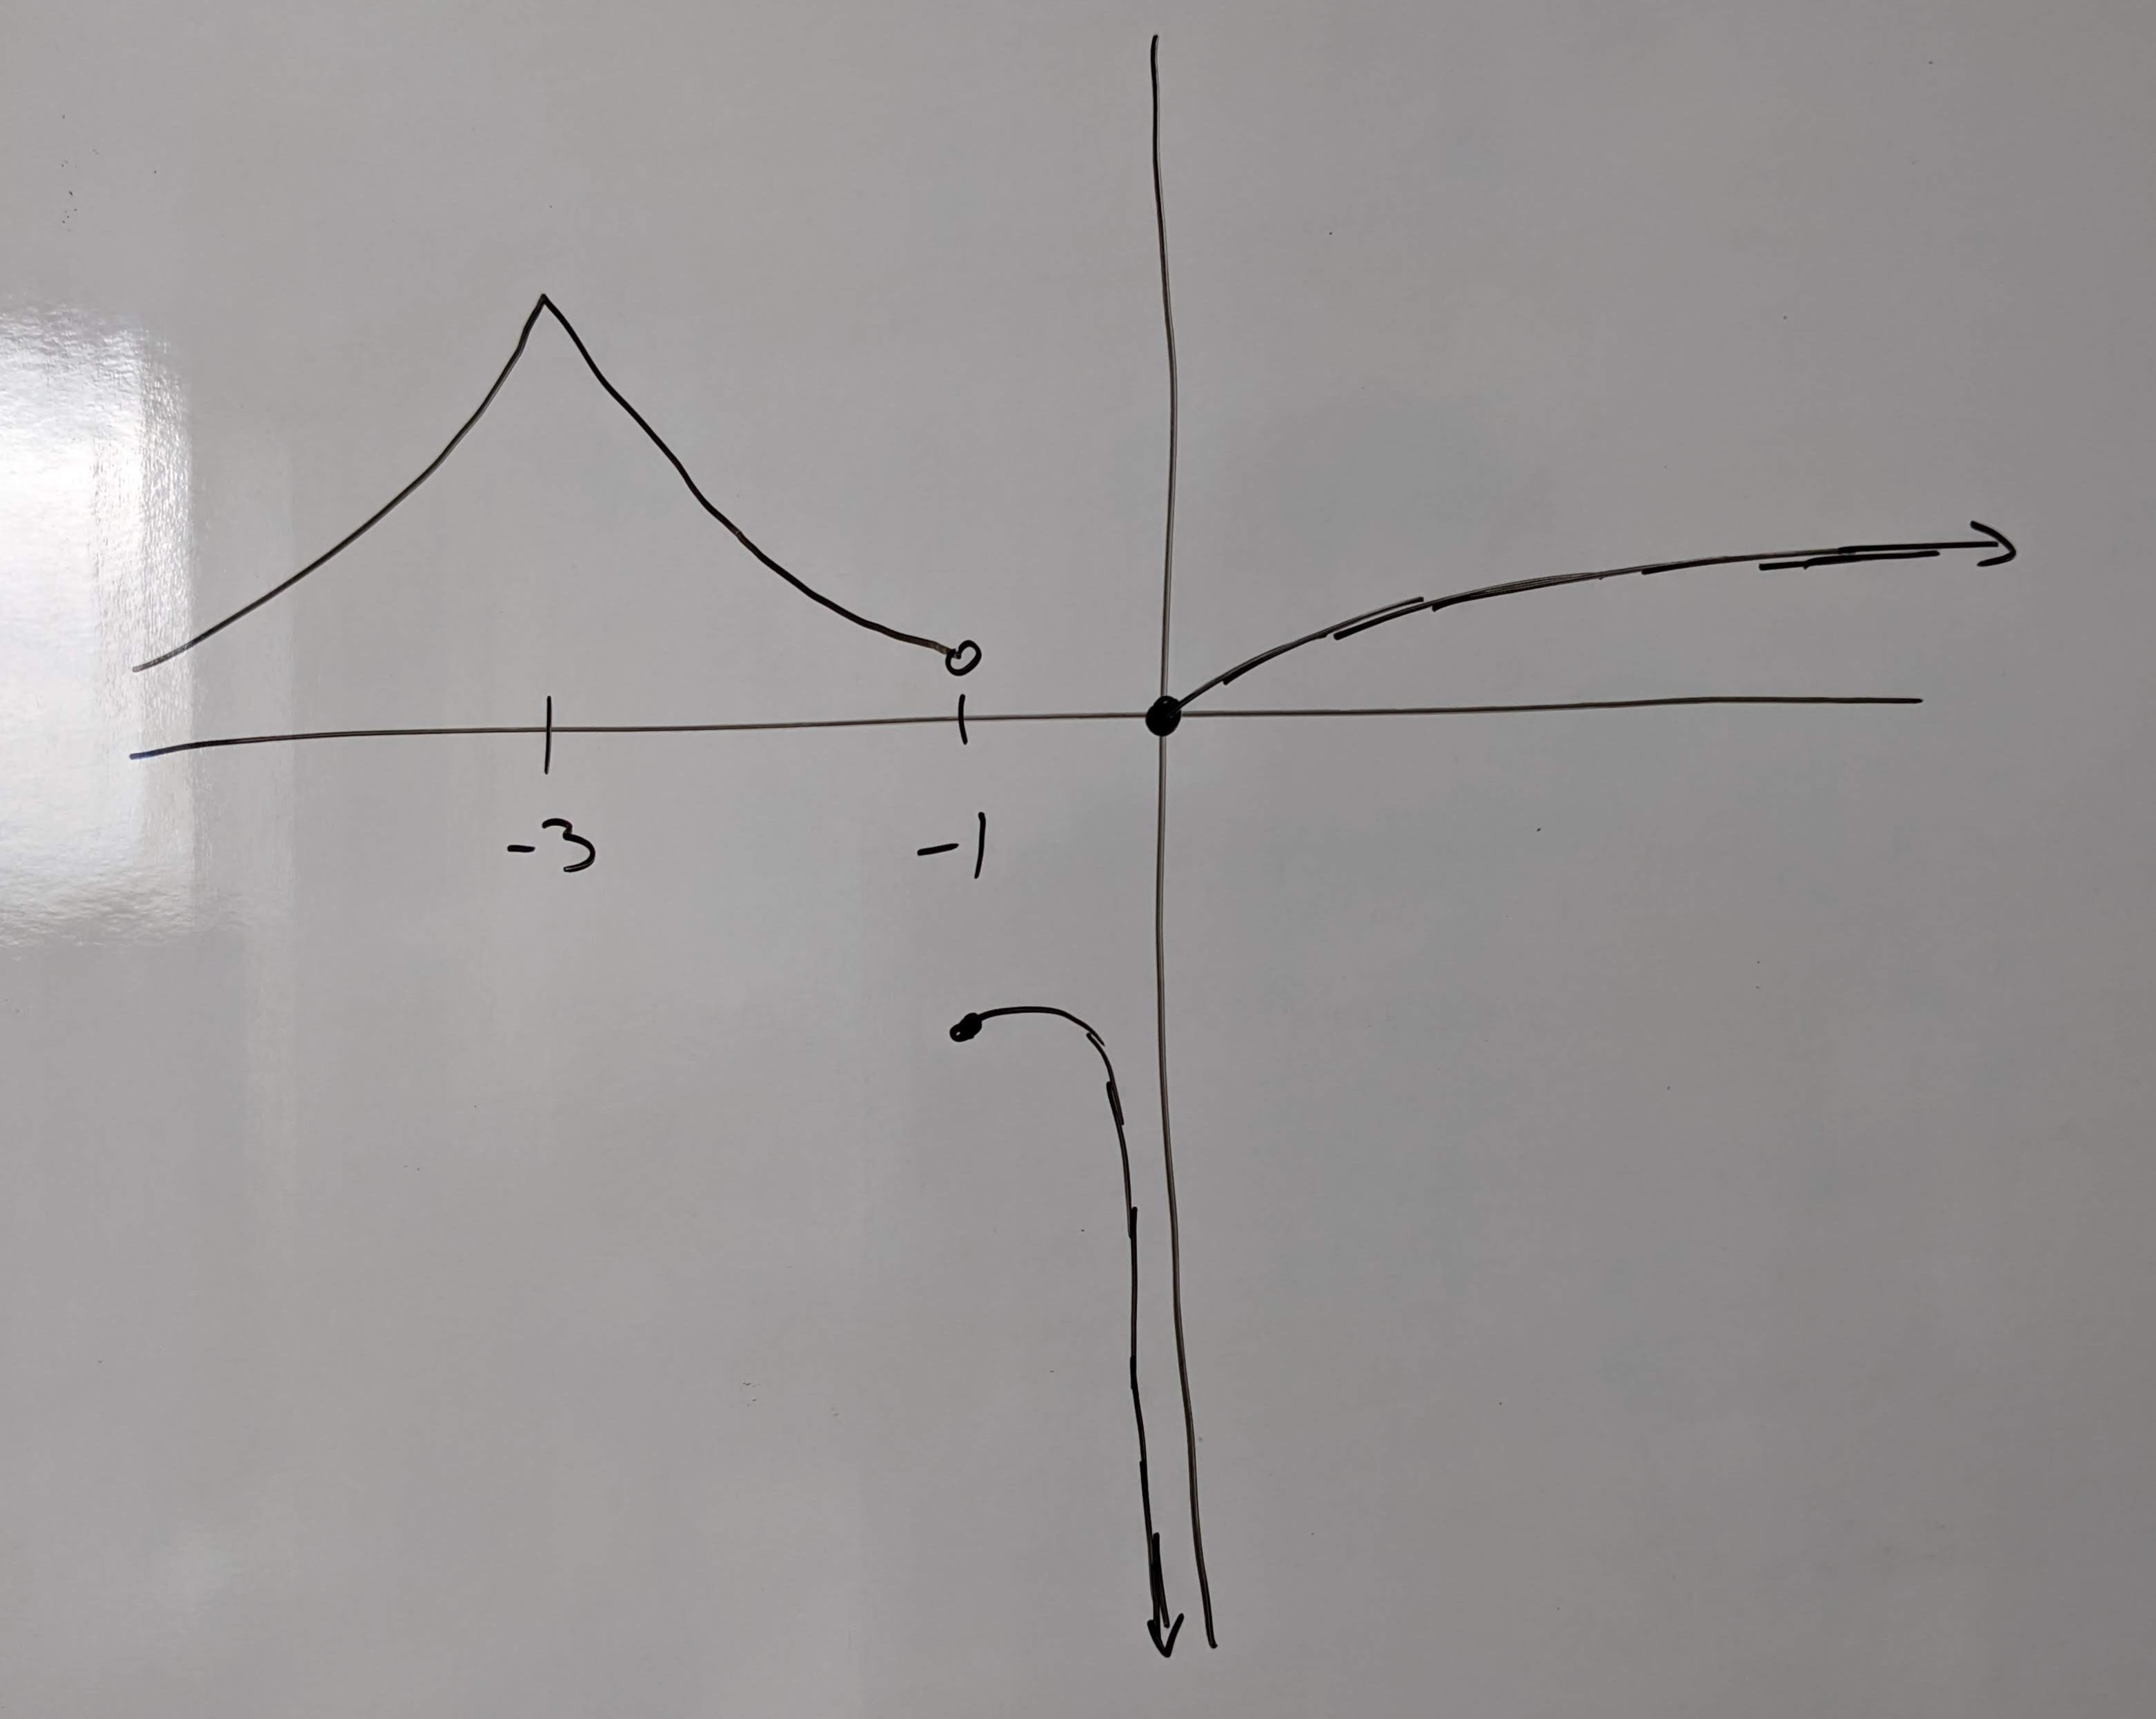 -3 -1